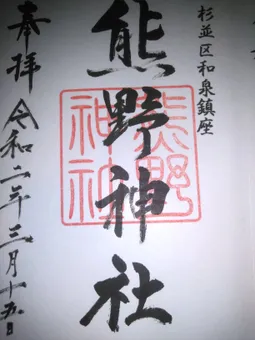 杉並区和泉鎮座
熊野神社
熊野神社
奉拝 令和二年三月十五日